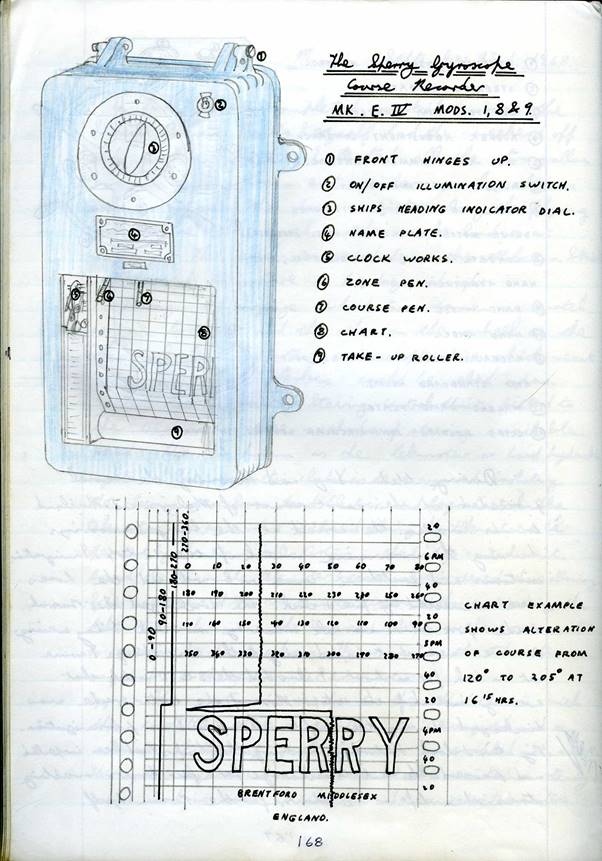 The Sperry Gyroscope
Course Recorder
MK. E. IV MODS. 1, 8 & 9.
① FRONT HINGES UP.
② ON/OFF ILLUMINATION SWITCH.
③ SHIPS HEADING INDICATOR DIAL.
④ NAME PLATE.
⑤ CLOCK WORKS.
⑥ ZONE PEN.
⑦ COURSE PEN.
⑧ CHART.
⑨ TAKE-UP ROLLER.
①
②
③
④
⑤ ⑥ ⑦
⑧
SPER
⑨
0-90 90-180 180-270 270-360.
20
6PM
0 10 20 30 40 50 60 70 80
40
180 190 200 210 220 230 250 260
20
170 160 150 140 130 120 110 100 90
5PM
350 340 330 320 310 300 290 280 270
40
20
4PM
40
20
SPERRY
BRENTFORD MIDDLESEX
ENGLAND.
CHART EXAMPLE
SHOWS ALTERATION
OF COURSE FROM
120° TO 205° AT
16 15 HRS.
168